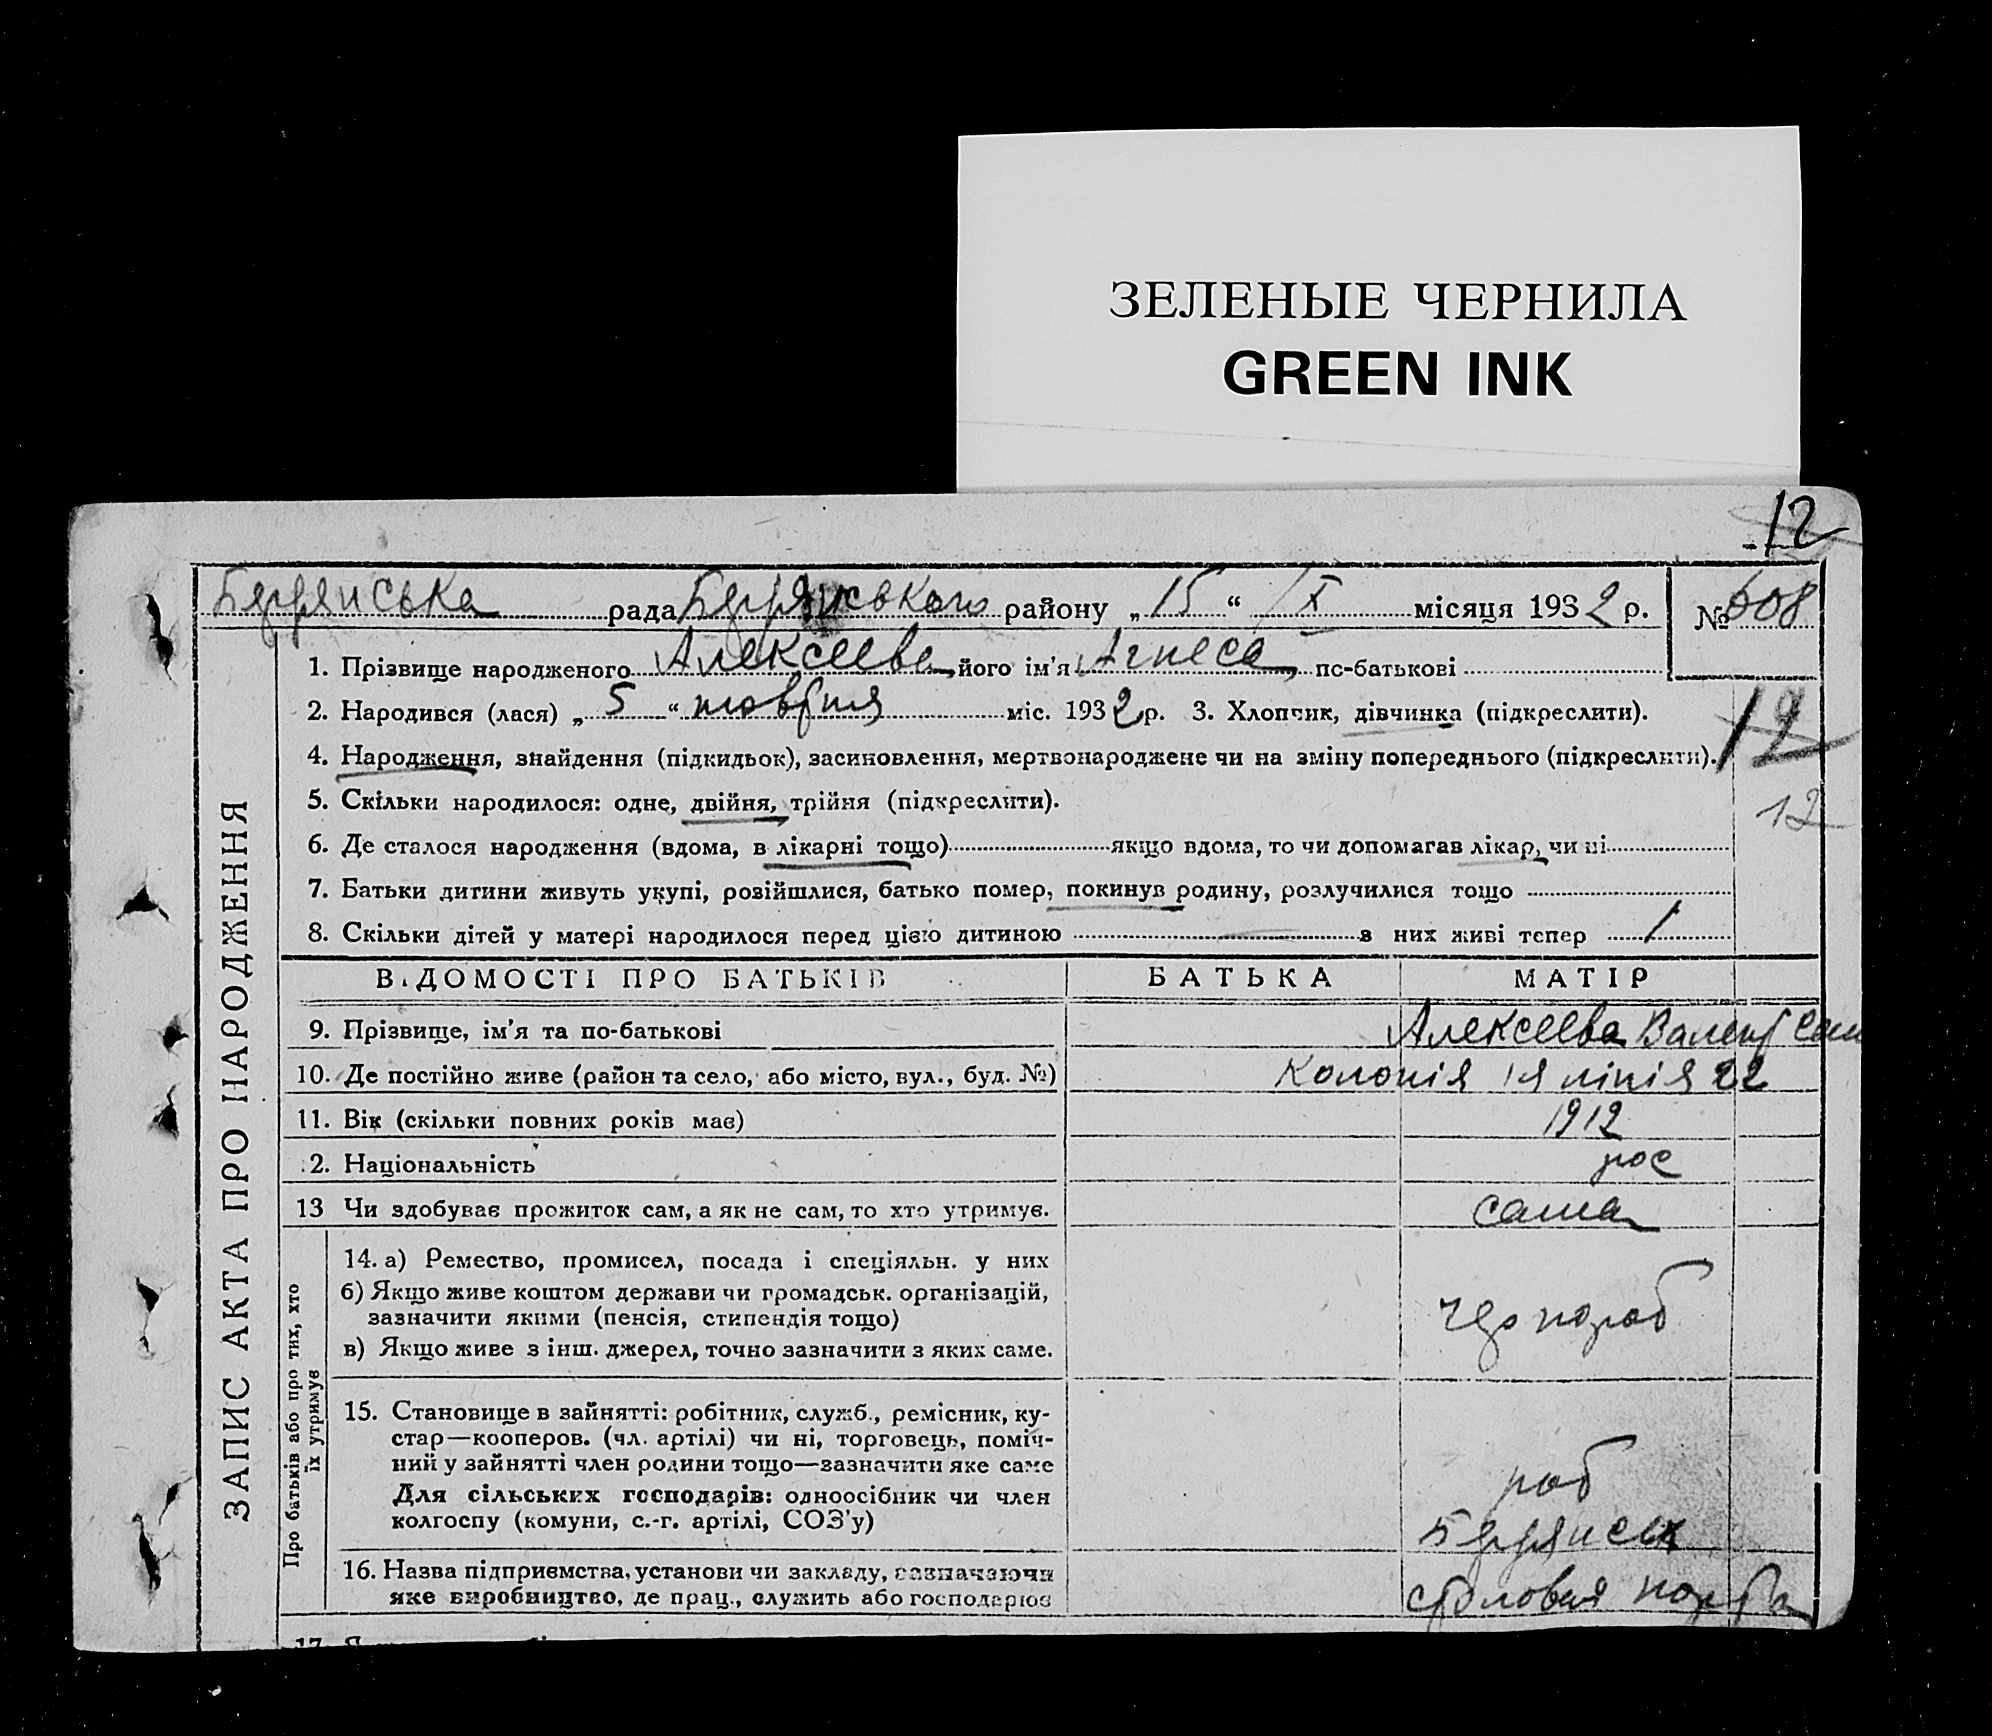 ЗЕЛЕНЫЕ ЧЕРНИЛА
GREEN INK
12
Бердянська рада Бердянського району „15“ X місяця 1932 р. № 608
1. Прізвище народженого Алексеева, його ім'я Агнеса, по-батькові
2. Народився (лася) „5“ жовтня міс. 1932 р. 3. Хлопчик, дівчинка (підкреслити).
12
4. Народження, знайдення (підкидьок), засиновлення, мертвонароджене чи на зміну попереднього (підкреслити).
5. Скільки народилося: одне, двійня, трійня (підкреслити).
12
6. Де сталося народження (вдома, в лікарні тощо) якщо вдома, то чи допомагав лікар, чи ні
7. Батьки дитини живуть укупі, розійшлися, батько помер, покинув родину, розлучилися тощо
8. Скільки дітей у матері народилося перед цією дитиною — з них живі тепер 1
ЗАПИС АКТА ПРО НАРОДЖЕННЯ
ВІДОМОСТІ ПРО БАТЬКІВ БАТЬКА МАТІР
9. Прізвище, ім'я та по-батькові Алексеева
10. Де постійно живе (район та село, або місто, вул., буд. №) Колонія 1я лінія 22
11. Вік (скільки повних років має) 1912
12. Національність рос
13 Чи здобуває прожиток сам, а як не сам, то хто утримує. сама
Про батьків або про тих, хто їх утримує
14. а) Ремество, промисел, посада і спеціяльн. у них
б) Якщо живе коштом держави чи громадськ. організацій,
зазначити якими (пенсія, стипендія тощо)
чернораб
в) Якщо живе з інш. джерел, точно зазначити з яких саме.
15. Становище в зайнятті: робітник, служб., ремісник, ку-
стар—кооперов. (чл. артілі) чи ні, торговець, поміч-
ний у зайнятті член родини тощо—зазначити яке саме
раб
Для сільських господарів: одноосібник чи член
колгоспу (комуни, с.-г. артілі, СОЗ'у)
Бердянськ
16. Назва підприємства, установи чи закладу, зазначаючи
яке виробництво, де прац., служить або господарює
столовая
17